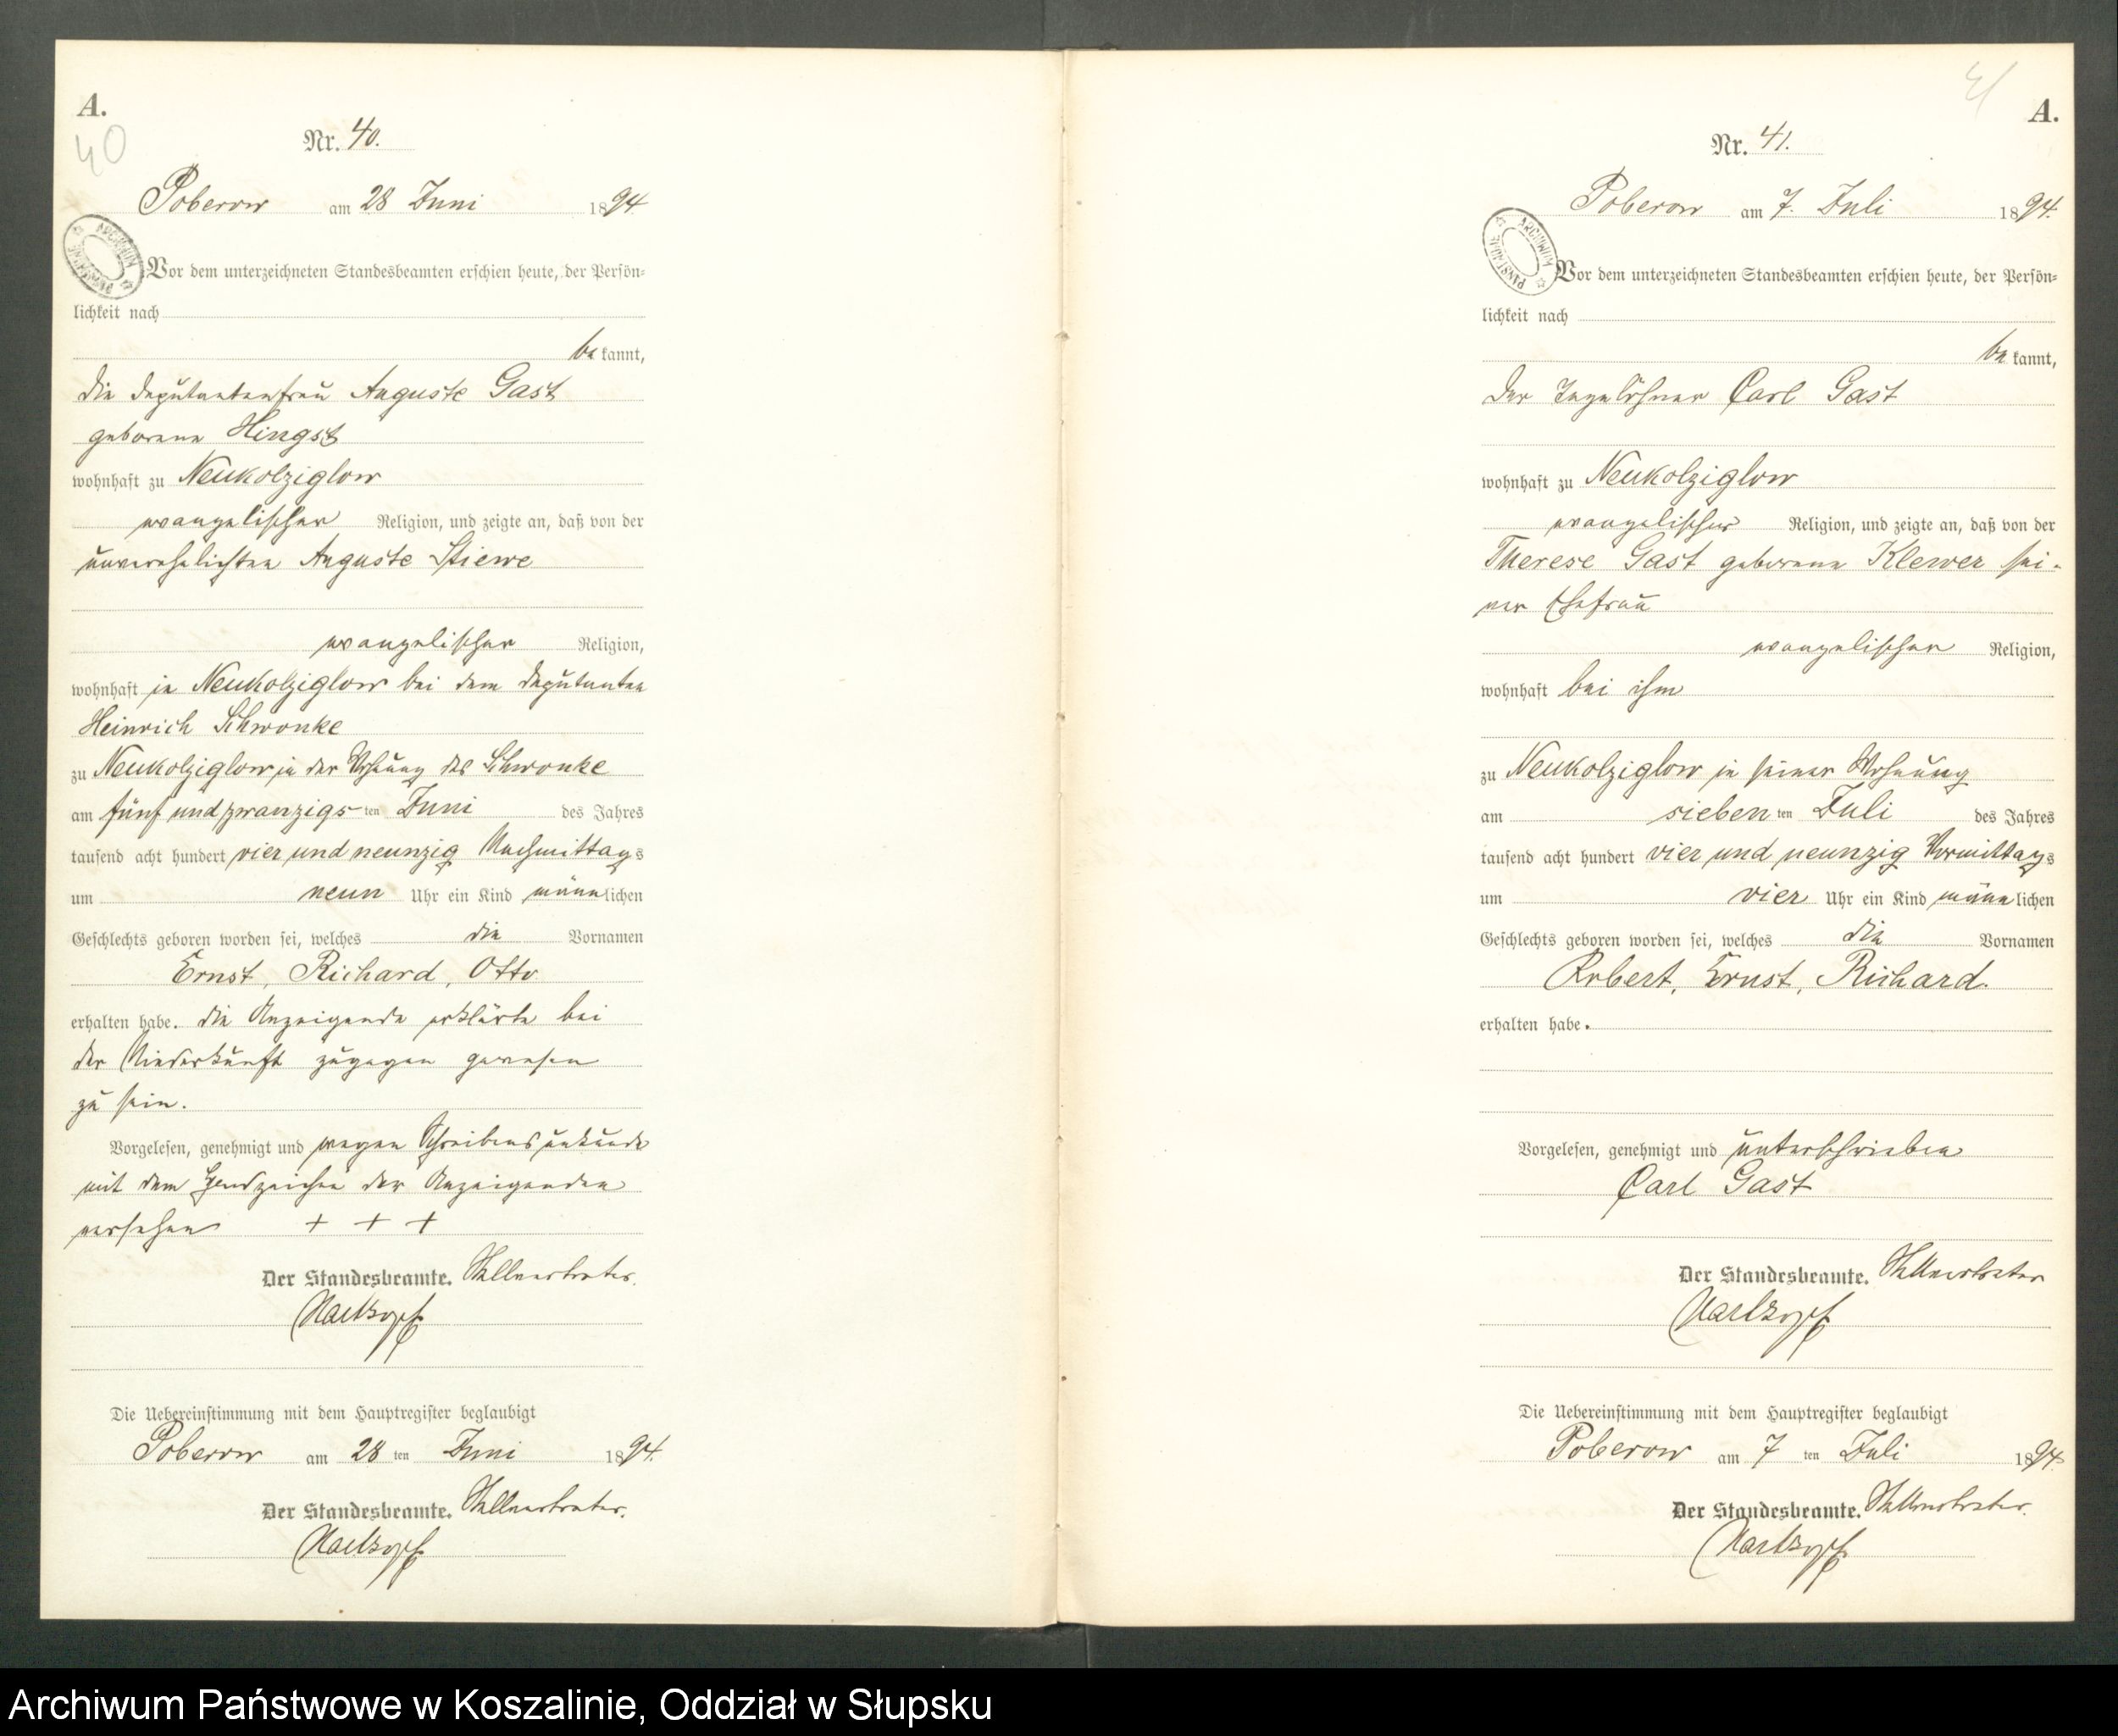 A.
40
Nr. 40.
Poberow am 28 Juni 1894.
ARCHIWUM PAŃSTWOWE
Vor dem unterzeichneten Standesbeamten erschien heute, der Persön-
lichkeit nach
bekannt,
die Deputantenfrau Auguste Gast
geborene Hingst
wohnhaft zu Neukolziglow
evangelischer Religion, und zeigte an, daß von der
unverehelichten Auguste Stiewe
evangelischer Religion,
wohnhaft in Neukolziglow bei dem Deputanten
Heinrich Schwonke
zu Neukolziglow in der Wohnung des Schwonke
am fünf und zwanzigsten Juni des Jahres
tausend acht hundert vier und neunzig Nachmittags
um neun Uhr ein Kind männlichen
Geschlechts geboren worden sei, welches die Vornamen
Ernst, Richard, Otto
erhalten habe. Die Anzeigende erklärte bei
der Niederkunft zugegen gewesen
zu sein.
Vorgelesen, genehmigt und wegen Schreibensunkunde
mit dem Handzeichen der Anzeigenden
versehen + + +
Der Standesbeamte. Stellvertreter.
Die Uebereinstimmung mit dem Hauptregister beglaubigt
Poberow am 28 ten Juni 1894.
Der Standesbeamte. Stellvertreter.
41
A.
Nr. 41.
Poberow am 7. Juli 1894.
ARCHIWUM PAŃSTWOWE
Vor dem unterzeichneten Standesbeamten erschien heute, der Persön-
lichkeit nach
bekannt,
der Tagelöhner Carl Gast
wohnhaft zu Neukolziglow
evangelischer Religion, und zeigte an, daß von der
Therese Gast geborene Klewer sei-
ner Ehefrau
evangelischer Religion,
wohnhaft bei ihm
zu Neukolziglow in seiner Wohnung
am siebenten Juli des Jahres
tausend acht hundert vier und neunzig Vormittags
um vier Uhr ein Kind männlichen
Geschlechts geboren worden sei, welches die Vornamen
Robert, Ernst, Richard.
erhalten habe.
Vorgelesen, genehmigt und unterschrieben
Carl Gast
Der Standesbeamte. Stellvertreter
Die Uebereinstimmung mit dem Hauptregister beglaubigt
Poberow am 7 ten Juli 1894.
Der Standesbeamte. Stellvertreter.
Archiwum Państwowe w Koszalinie, Oddział w Słupsku